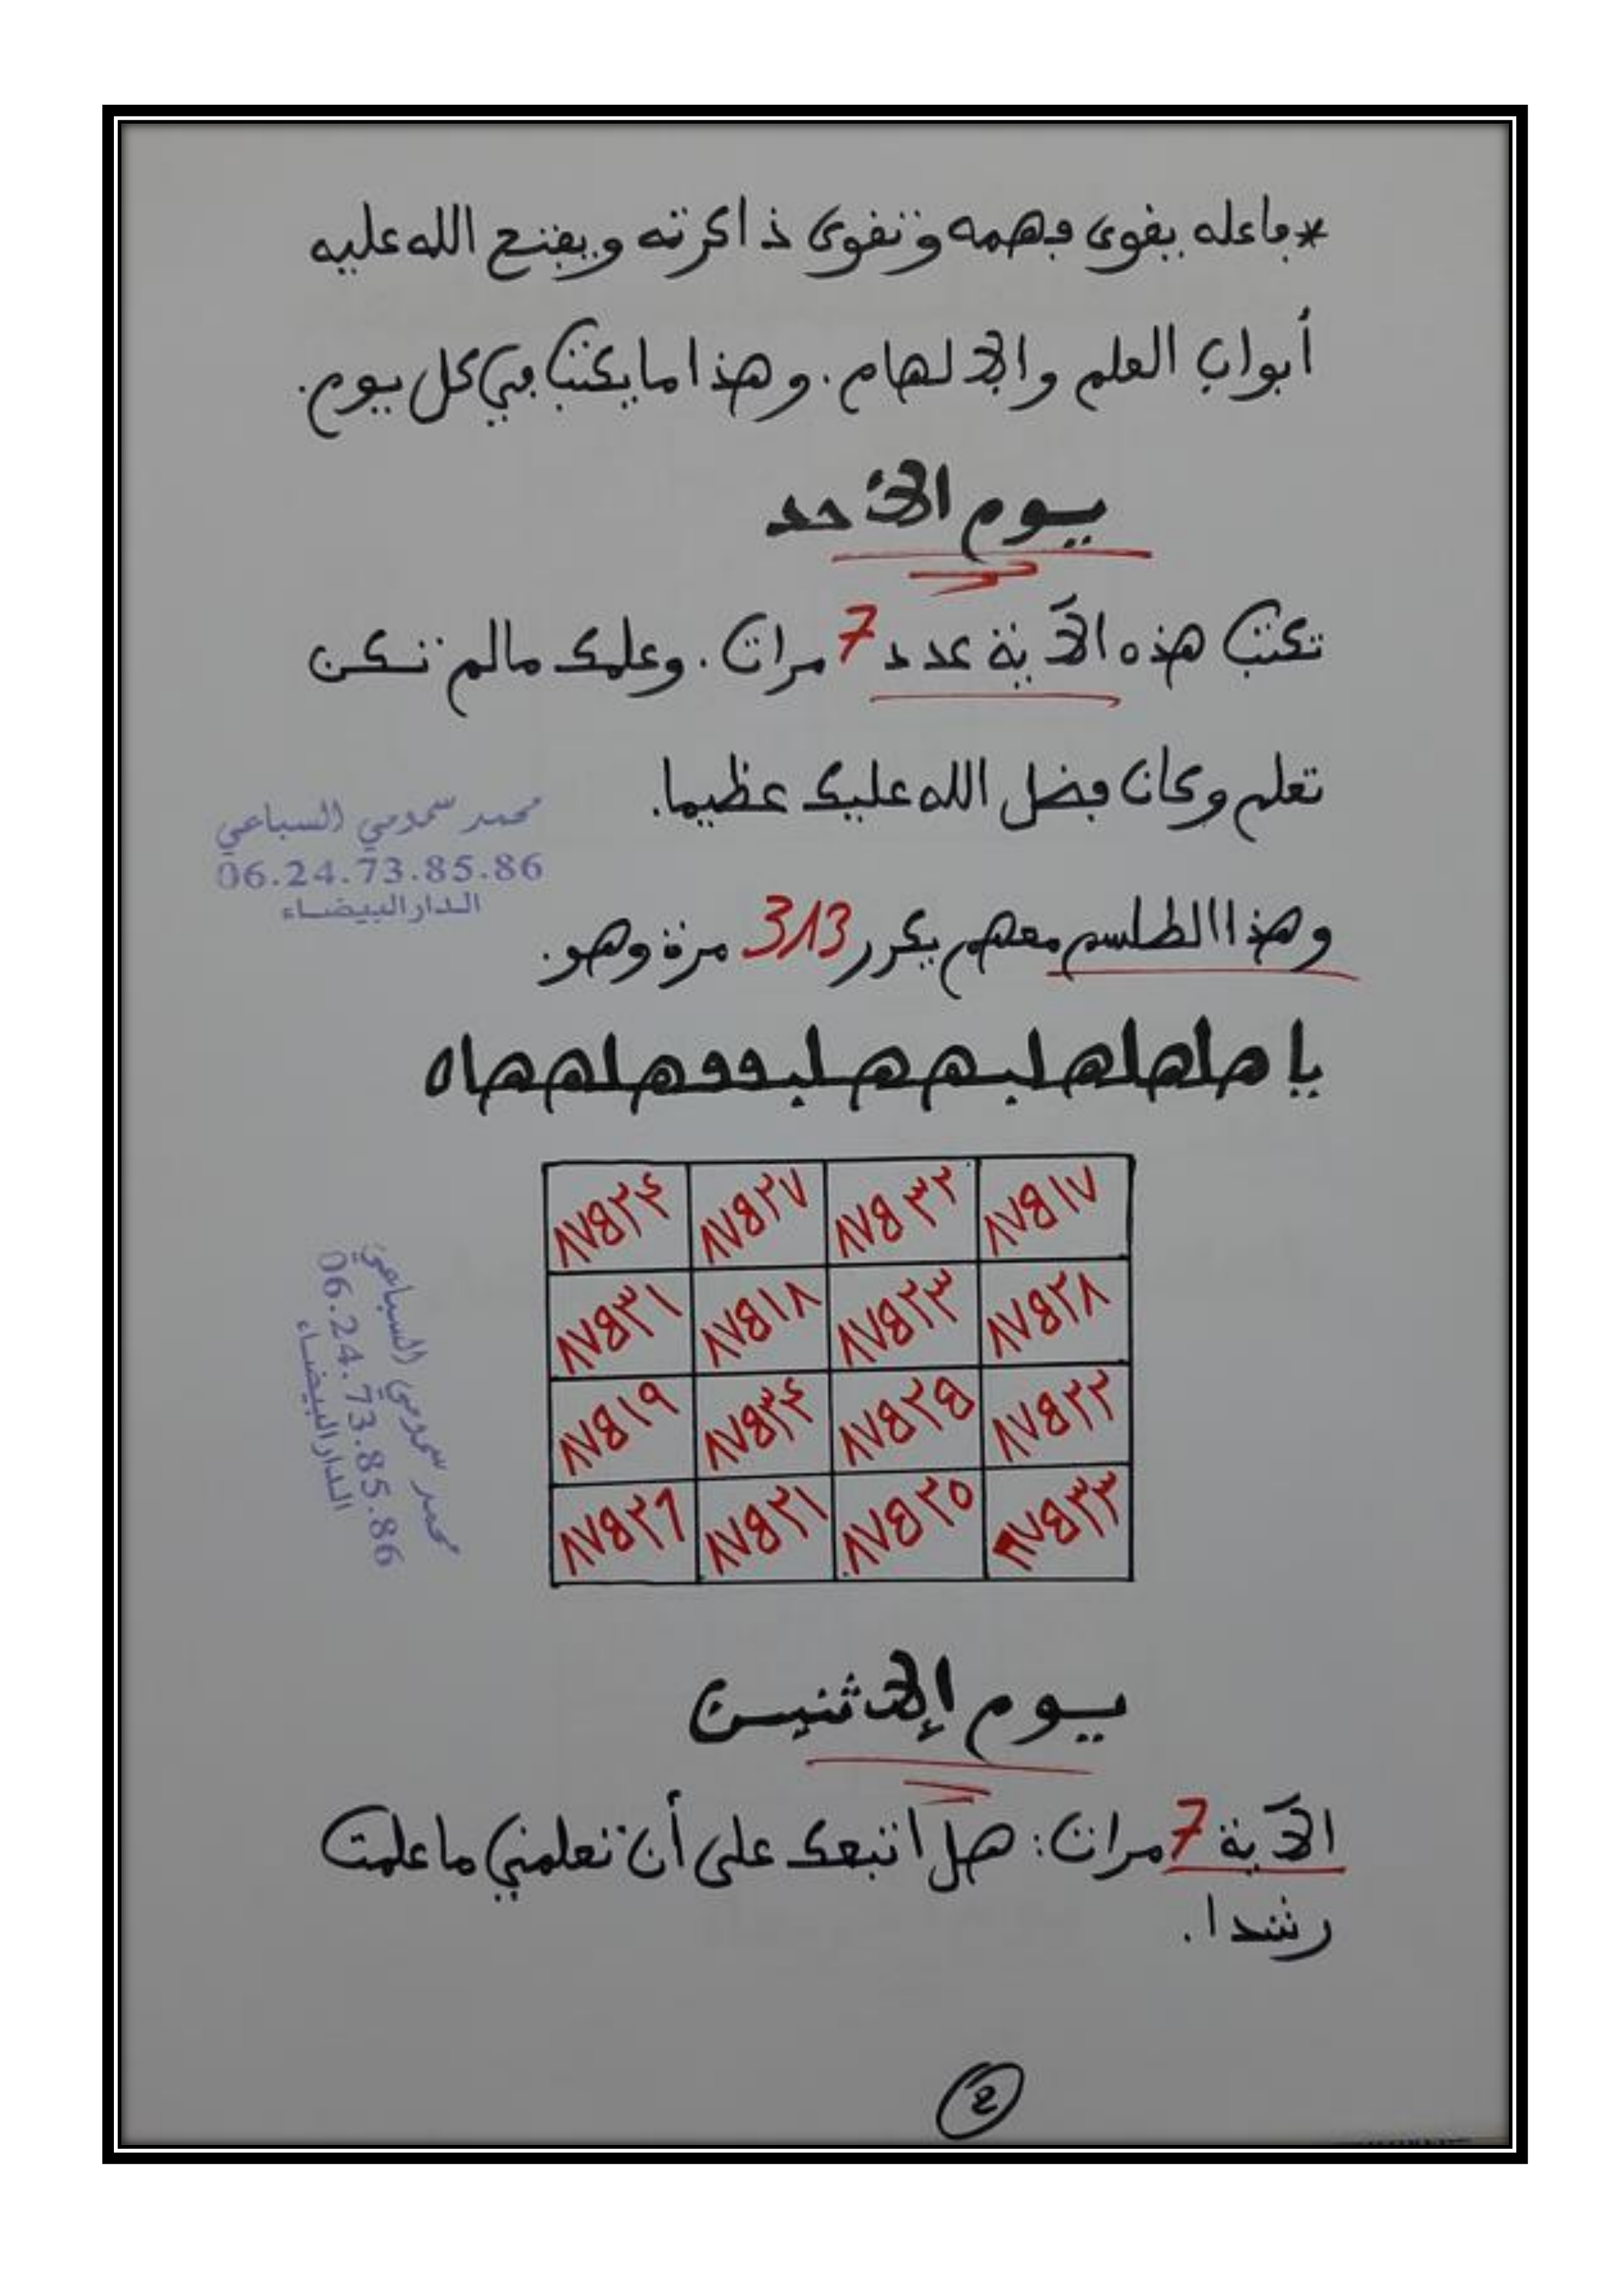 *فاعله يقوى فهمه وتقوى ذاكرته ويفتح الله عليه
أبواب العلم والإلهام. وهذا ما يكتب في كل يوم.
يوم الأحد
تكتب هذه الآية عدد 7 مرات. وعلمك مالم تكن
تعلم وكان فضل الله عليك عظيما.
محمد سمومي السباعي
06.24.73.85.86
الدار البيضاء
وهذا الطلسم معهم يكرر 313 مرة وهو.
٨٧٥١٧ ٨٧٥٣٢ ٨٧٥٢٧ ٨٧٥٢٤
٨٧٥٢٨ ٨٧٥٢٣ ٨٧٥١٨ ٨٧٥٣١
٨٧٥٢٢ ٨٧٥٢٥ ٨٧٥٣٤ ٨٧٥١٩
٨٧٥٣٣ ٨٧٥٢٠ ٨٧٥٢١ ٨٧٥٢٦
محمد سمومي السباعي
06.24.73.85.86
الدار البيضاء
يوم الإثنين
الآية 7 مرات: هل أتبعك على أن تعلمني ما علمت
رشدا.
2